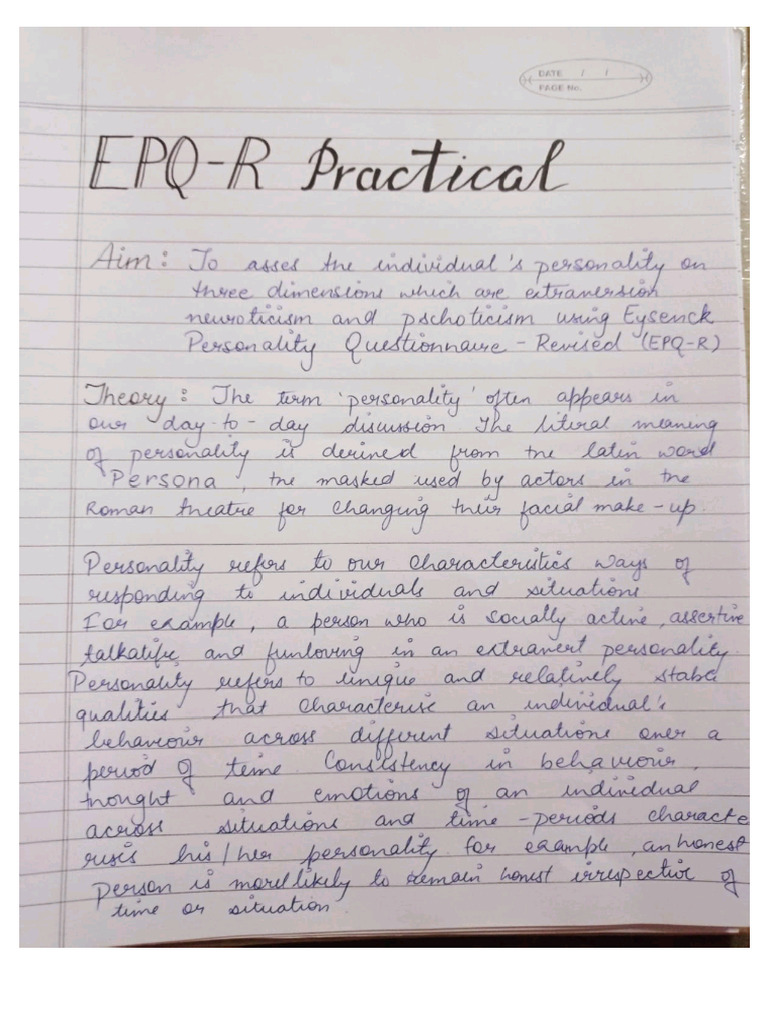 DATE / /
PAGE No.
EPQ-R Practical
Aim: To asses the individual's personality on
three dimensions which are extraversion
neuroticism and pschoticism using Eysenck
Personality Questionnaire - Revised (EPQ-R)
Theory: The term 'personality' often appears in
our day-to-day discussion The literal meaning
of personality is derived from the latin word
Persona, the masked used by actors in the
Roman theatre for changing their facial make-up.
Personality refers to our characteristics ways of
responding to individuals and situations
For example, a person who is socially active, assertive
talkatife, and funloving in an extravert personality.
Personality refers to unique and relatively stable
qualities that characterise an individual's
behaviour across different situations over a
period of time. Consistency in behaviour,
thought and emotions of an individual
across situations and time-periods characte
rises his/her personality. for example, an honest
person is more likely to remain honest irrespective of
time or situation.